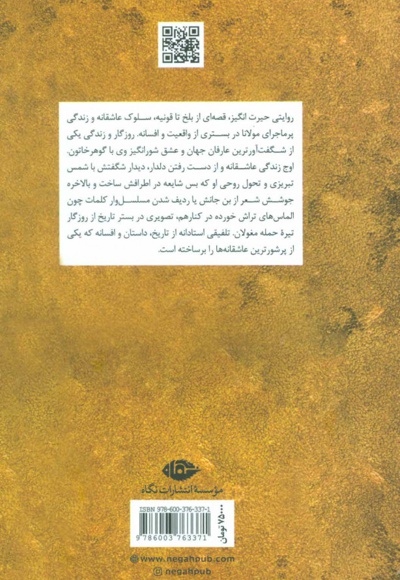 روایتی حیرت انگیز، قصه‌ای از بلخ تا قونیه، سلوک عاشقانه و زندگی
پرماجرای مولانا در بستری از واقعیت و افسانه. روزگار و زندگی یکی
از شگفت‌آورترین عارفان جهان و عشق شورانگیز وی با گوهرخاتون.
اوج زندگی عاشقانه و از دست رفتن دلدار، دیدار شگفتش با شمس
تبریزی و تحول روحی او که بس شایعه در اطرافش ساخت و بالاخره
جوشش شعر از بن جانش یا ردیف شدن مسلسل‌وار کلمات چون
الماس‌های تراش خورده در کنارهم، تصویری در بستر تاریخ از روزگار
تیرهٔ حمله مغولان. تلفیقی استادانه از تاریخ، داستان و افسانه که یکی
از پرشورترین عاشقانه‌ها را برساخته است.
مؤسسهٔ انتشارات نگاه
ISBN 978-600-376-337-1
9 786003 763371
۷۵۰۰۰ تومان
www.negahpub.com
negahpub